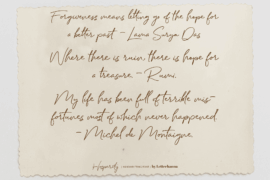 Forgiveness means letting go of the hope for
a better past - Lama Surya Das
Where there is ruin, there is hope for
a treasure - Rumi.
My life has been full of terrible mis-
fortunes most of which never happened.
- Michel de Montaigne.